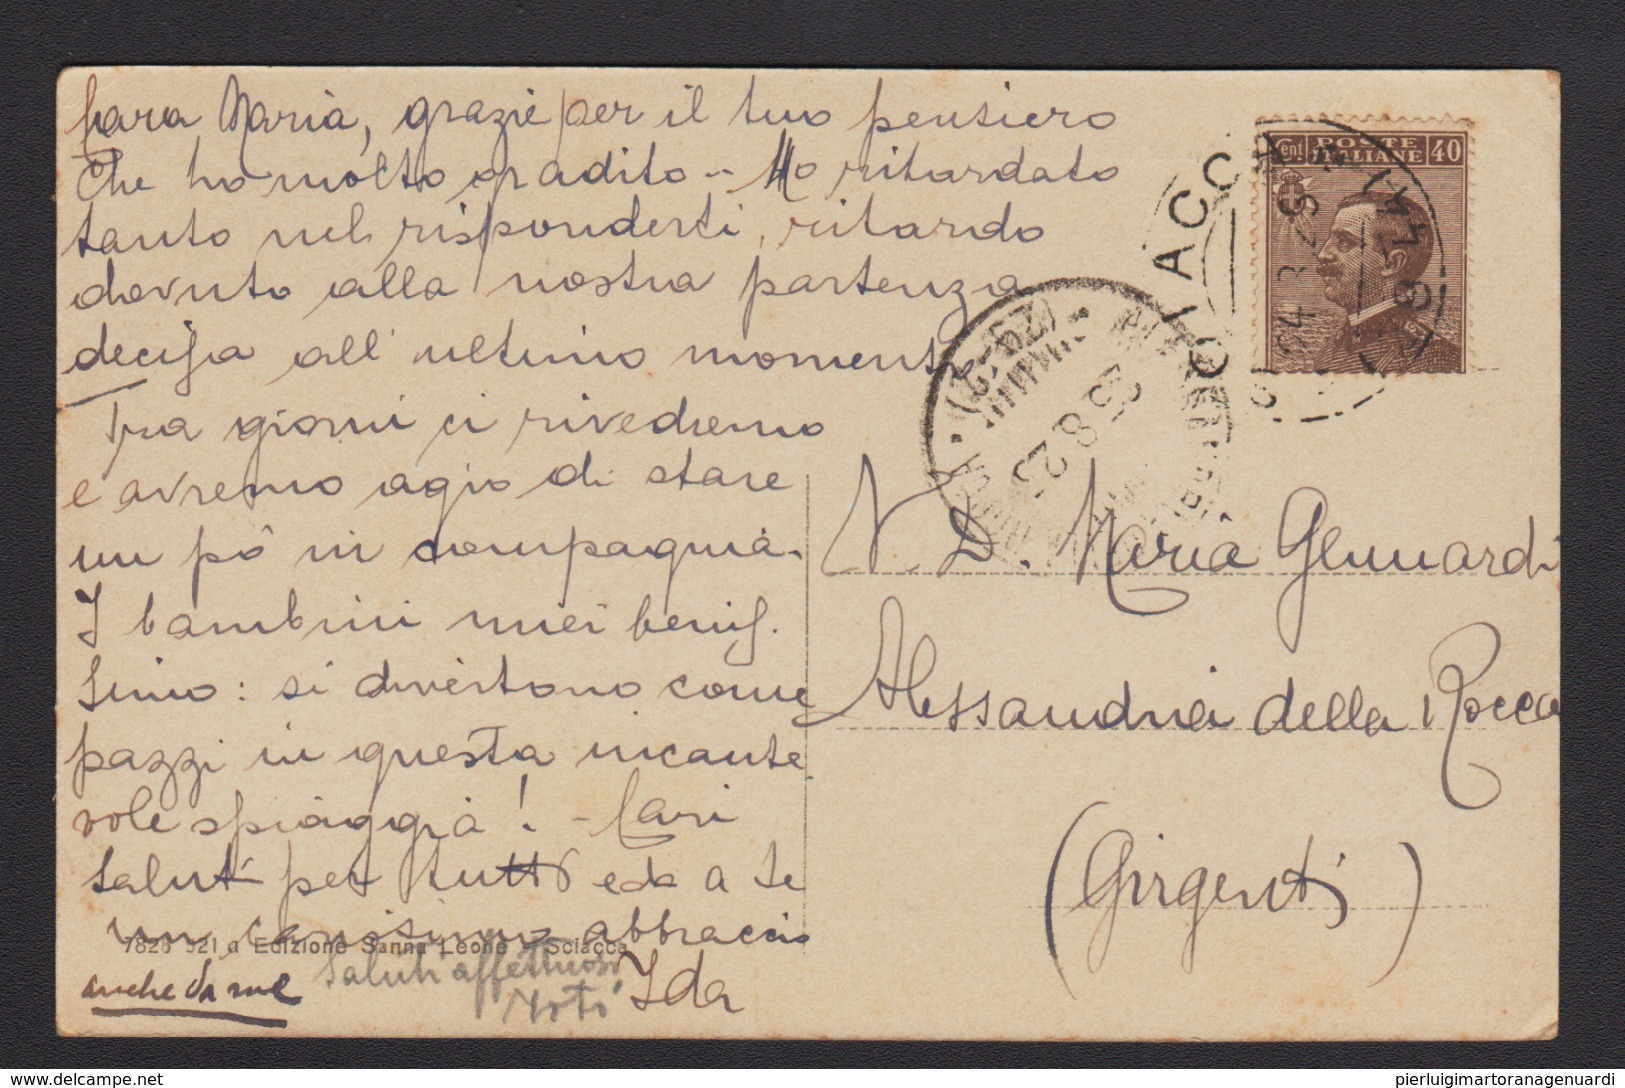 Cara Maria, grazie per il tuo pensiero
che ho molto gradito - Ho ritardato
tanto nel risponderti, ritardo
dovuto alla nostra partenza
decisa all'ultimo momento
Tra giorni ci rivedremo
e avremo agio di stare
un pò in compagnia.
I bambini miei benis.
simo: si divertono come
pazzi in questa incante
vole spiaggia! - Cari
saluti per tutti ed a te
un carissimo abbraccio
Ida
anche da me
Saluti affettuosi
7826 321 a Edizione Sanna Leone - Sciacca
cent POSTE ITALIANE 40
SCIACCA
24.8.25
25 8 25
N. D. Maria Genuardi
Alessandria della Rocca
(Girgenti)
delcampe.net
pierluigimartoranagenuardi